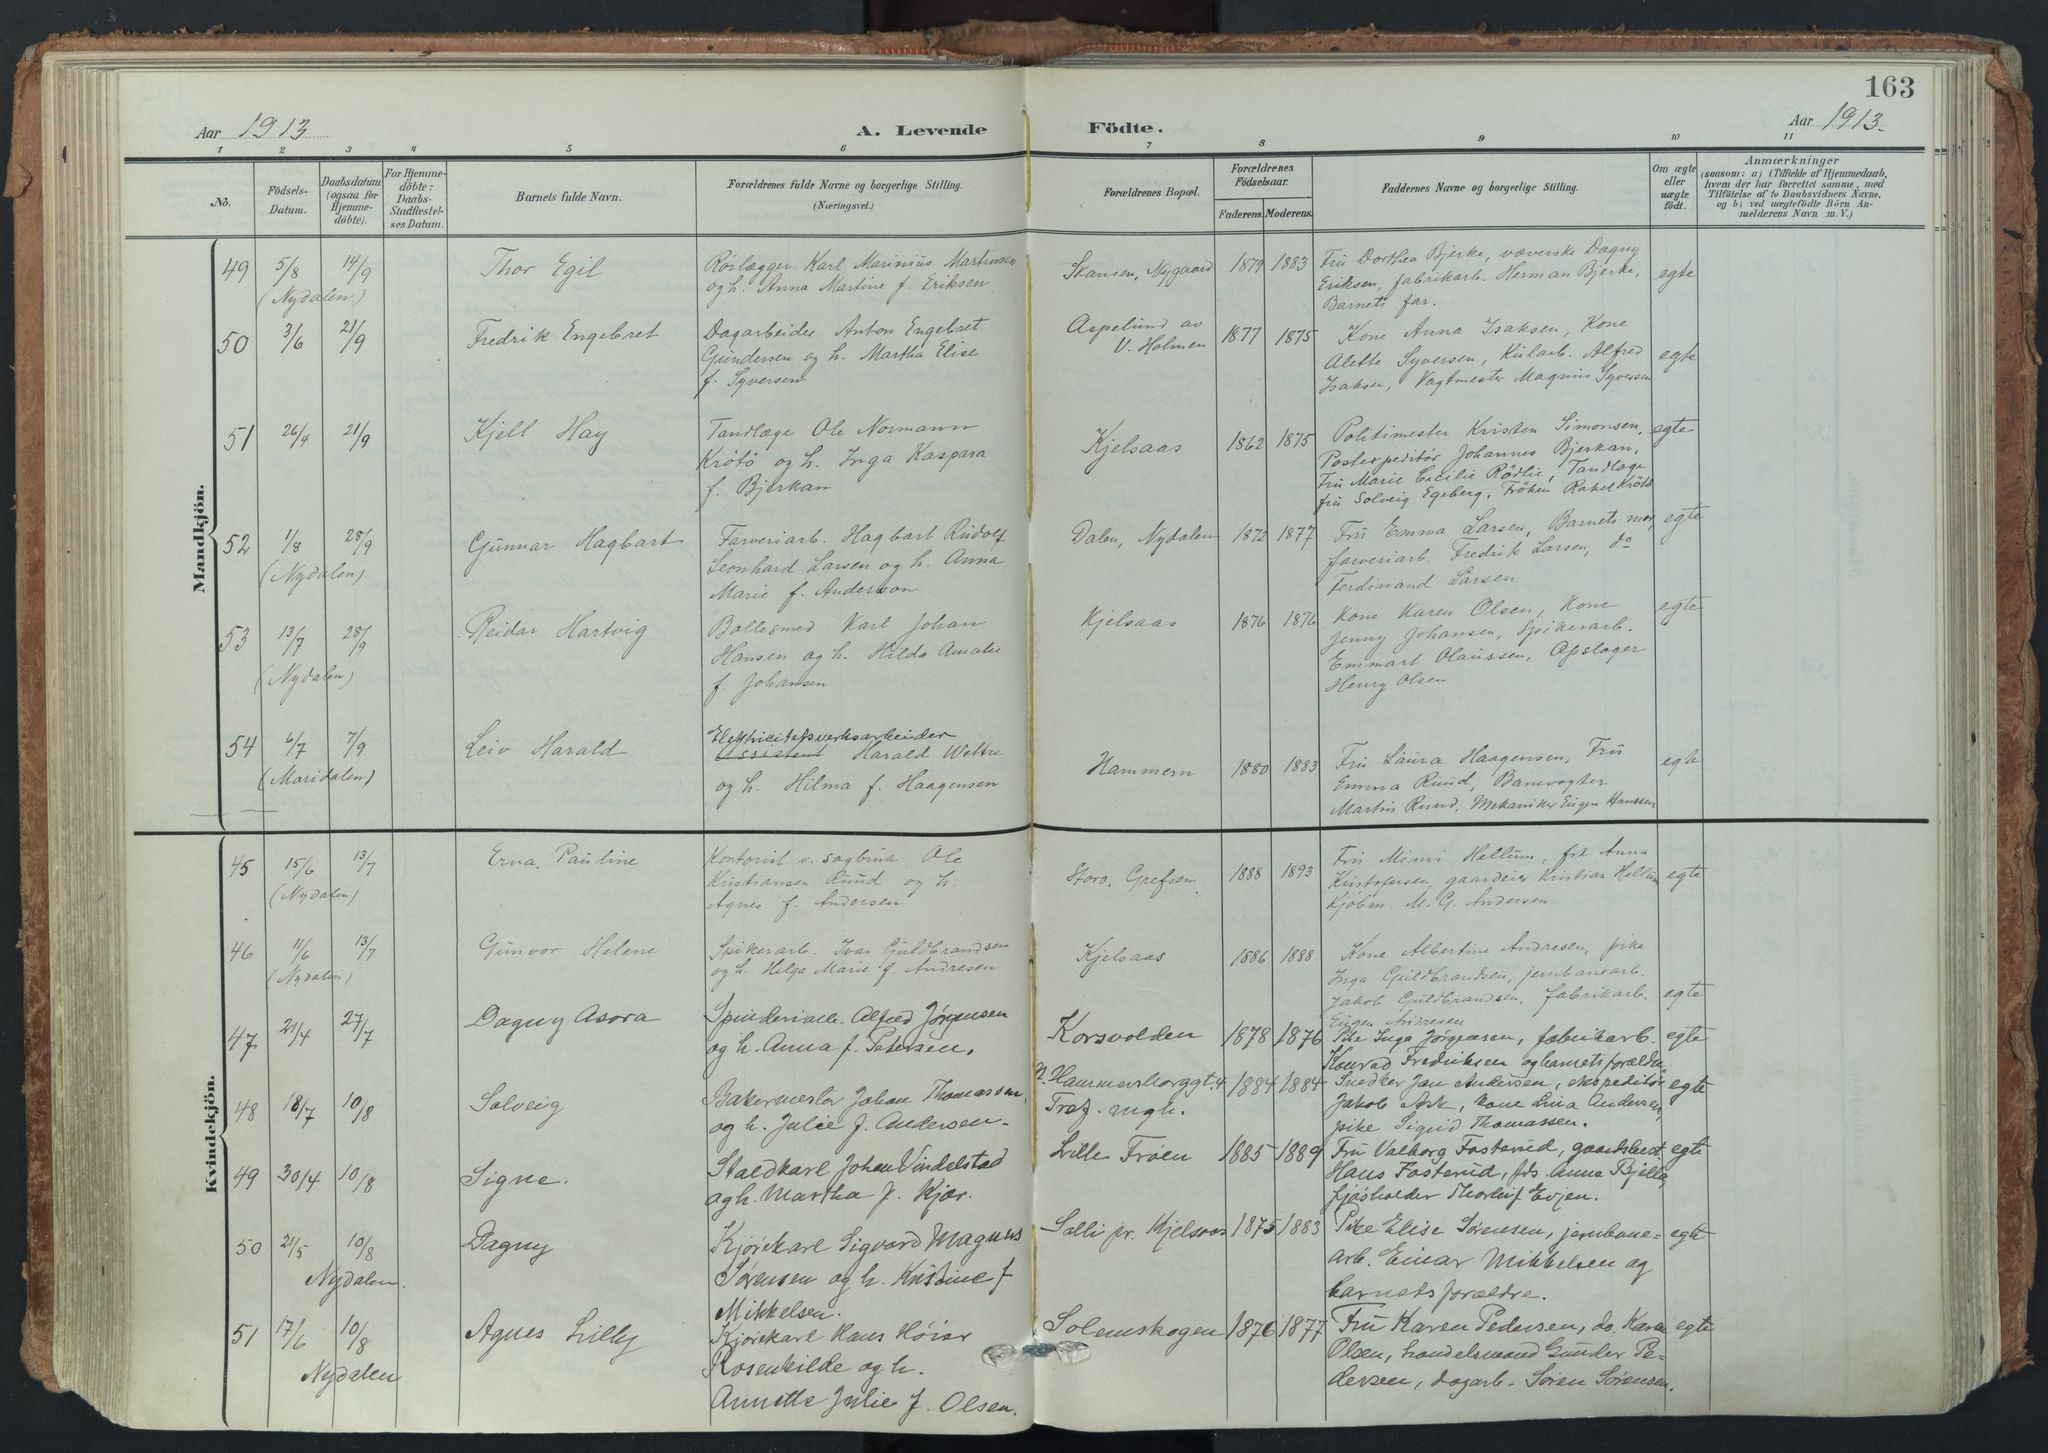 163
Aar 1913
A. Levende Födte.
Aar 1913.
1 2 3 4 5 6 7 8 9 10 11
No.
Födsels-Datum.
Daabsdatum (ogsaa for Hjemmedöbte).
For Hjemmedöbte: Daabs-Stadfæstelses Datum.
Barnets fulde Navn.
Forældrenes fulde Navne og borgerlige Stilling.
(Næringsvei.)
Forældrenes Bopæl.
Forældrenes Födselsaar.
Faderens. Moderens.
Faddernes Navne og borgerlige Stilling.
Om ægte eller uægte födt.
Anmærkninger
(saasom: a) i Tilfælde af Hjemmedaab,
hvem der har forrettet samme, med
Tilföielse af to Daabsvidners Navne,
og b) ved uægtefödte Börn Anmelderens Navn m. V.)
Mandkjön.
49 5/8 14/9 Thor Egil
(Nydalen)
Rörlægger Karl Marinius Martinsen
og h. Anna Martine f. Eriksen
Skansen, Nygaard 1879 1883
Fru Dorthea Bjerke, væverske Dagny
Eriksen, fabrikarb. Herman Bjerke,
Barnets far.
egte
50 3/6 21/9 Fredrik Engebret
Dagarbeider Anton Engebret
Gundersen og h. Martha Elise
f. Syversen
Aspelund av
V. Holmen 1877 1875
Kone Anna Isaksen, Kone
Alette Syversen, Kularb. Alfred
Isaksen, Vagtmester Magnus Syversen
egte
51 26/4 21/9 Kjell Hay
Tandlæge Ole Normann
Krötö og h. Inga Kaspara
f. Bjerkan
Kjelsaas 1862 1875
Politimester Kristen Simonsen,
Postexpeditör Johannes Bjerkan,
Fru Marie Cecilie Rödlie, Tandlæge
fru Solveig Egeberg, Fröken Rakel Krötö
egte
52 1/8 28/9 Gunnar Hagbart
(Nydalen)
Farveriarb. Hagbart Rudolf
Leonhard Larsen og h. Anna
Marie f. Anderson
Dalen, Nydalen 1872 1877
Fru Emma Larsen, Barnets mor,
farveriarb. Fredrik Larsen, do
Ferdinand Larsen
egte
53 13/7 28/9 Reidar Hartvig
(Nydalen)
Boltesmed Karl Johan
Hansen og h. Hilda Amalie
f. Johansen
Kjelsaas 1876 1876
Kone Karen Olsen, Kone
Jenny Johansen, Spikerarb.
Emmart Olaussen, Opslager
Henry Olsen
egte
54 6/7 7/9 Leiv Harald
(Maridalen)
Elektricitetsverksarbeider
Assistent Harald Weltre
og h. Hilma f. Haagensen
Hammern 1880 1883
Fru Laura Haagensen, Fru
Emma Ruud, Banevogter
Martin Ruud, Mekaniker Eugen Hanssen
egte
Kvindekjön.
45 15/6 13/7 Erna Pauline
(Nydalen)
Kontorist v. sagbruk Ole
Kristiansen Ruud og h.
Agnes f. Andersen
Storo, Grefsen 1888 1893
Fru Mimi Hellum, frk Anna
Kristofersen, gaardeier Kristian Hellum
Kjöbm. M. G. Andersen
egte
46 11/6 13/7 Gunvor Helene
(Nydalen)
Spikerarb. Ivar Guldbrandsen
og h. Helga Marie f. Andresen
Kjelsaas 1886 1888
Kone Albertine Andresen, pike
Inga Guldbrandsen, jernbanearb.
Jakob Guldbrandsen, fabrikarb.
Eugen Andresen
egte
47 21/4 27/7 Dagny Asora
Spinderiarb. Alfred Jørgensen
og h. Anna f. Petersen.
Korsvolden 1878 1876
Pike Inga Jørgensen, fabrikarb.
Konrad Fredriksen og barnets forældre
egte
48 18/7 10/8 Solveig
Bakermester Johan Thomassen
og h. Julie f. Andersen.
N. Hammersborggt. 4
Tref. mgh. 1884 1884
Snedker Jan Andersen, ekspeditør
Jakob Ask, kone Lina Andersen,
pike Sigrid Thomassen.
egte
49 30/4 10/8 Signe.
Staldkarl Johan Vindelstad
og h. Martha f. Kjær.
Lille Frøen 1885 1889
Fru Valborg Fosterud, gaardsbest.
Hans Fosterud, frk. Anna Bjella,
fjøsholder Thorleif Evjen.
egte
50 21/5 10/8 Dagny
Nydalen.
Kjørekarl Sigvard Magnus
Sørensen og h. Kristine f
Mikkelsen.
Solli pr. Kjelsaas 1875 1883
Pike Elise Sørensen, jernbane-
arb. Einar Mikkelsen og
barnets forældre.
egte
51 17/6 10/8 Agnes Lilly
Nydalen
Kjørekarl Hans Höier
Rosenkilde og h.
Annette Julie f. Olsen.
Solemskogen 1876 1877
Fru Karen Pedersen, do. Karen
Olsen, handelsmand Gunder Pe-
dersen, dagarb. Søren Sørensen.
egte